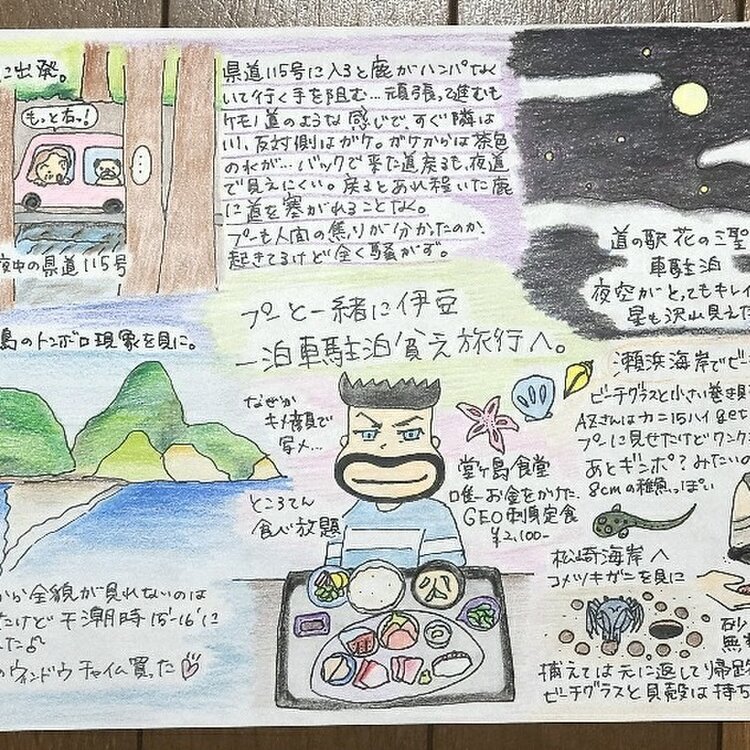 に出発。
もっと右っ!
...
夜中の県道115号
県道115号に入ると鹿がハンパなく
いて行く手を阻む…頑張って進むも
ケモノ道のような感じで、すぐ隣は
川、反対側はガケ。ガケからは茶色
の水が…バックで来た道戻るも、夜道
で見えにくい。戻るとあれ程いた鹿
に道を塞がれることなく。
プーも人間の焦りが分かったのか、
起きてるけど全く騒がず。
道の駅 花の三聖
車駐泊
夜空がとってもキレイ
星も沢山見えた
島のトンボロ現象を見に。
から全貌が見れないのは
たけど干潮時15-16に
た♪
のウィンドウチャイム買った♡
プーと一緒に伊豆
一泊車駐泊貧乏旅行へ。
なぜか
キメ顔で
写メ…
ところてん
食べ放題
堂ヶ島食堂
唯一お金をかけた、
GEO刺身定食
¥2,100-
瀬浜海岸でビー
ビーチグラスと小さい巻き貝
AZさんはカニ15ハイget
プーに見せたけどワンク
あとギンポ?みたいの
8cmの稚魚っぽい
松崎海岸へ
コメツキガニを見に
砂
無
捕えては元に返して帰路
ビーチグラスと貝殻は持ち